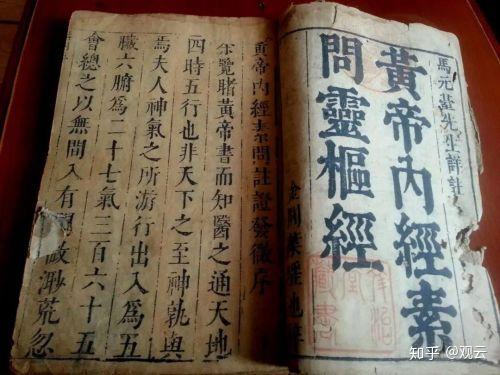 馬元臺先生詳註
黃帝內經素
問靈樞經
藏書
黃帝內經素問註證發微序
余覽睹黃帝書而知醫之通天地
四時五行也非天下之至神孰與
焉夫人神氣之所游行出入爲五
臟六腑爲二十七氣三百六十五
會總之以無間入有間渺荒忽
知乎 @观云